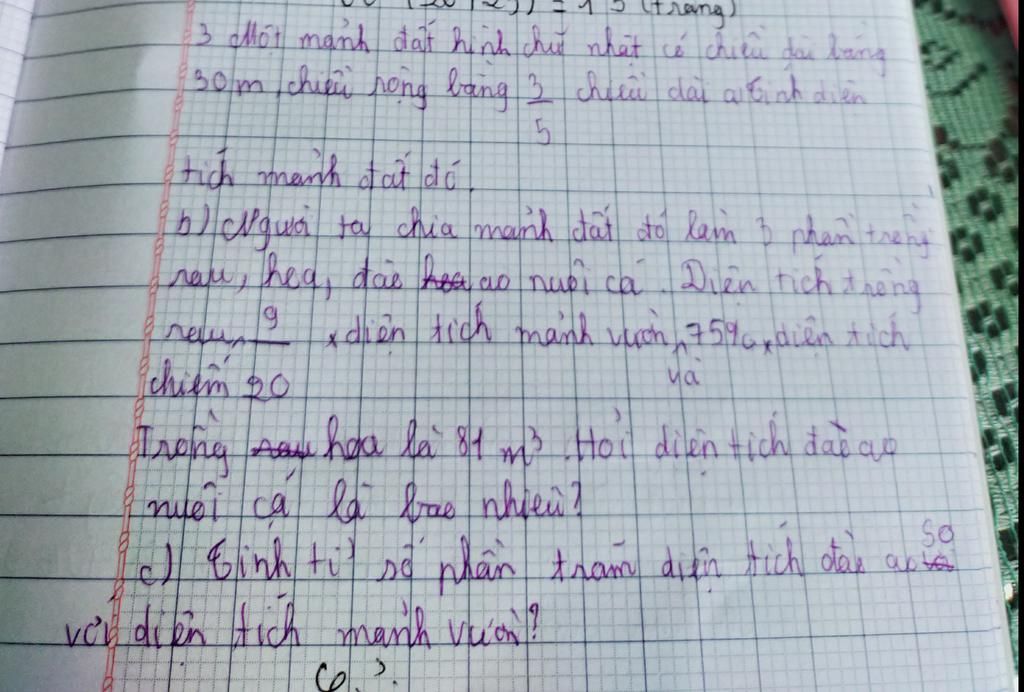 = 15 (trang)
3 Một mảnh đất hình chữ nhật có chiều dài bằng
30m, chiều rộng bằng 3/5 chiều dài a, tính diện
tích mảnh đất đó.
b) Người ta chia mảnh đất đó làm 3 phần trồng
rau, hoa, đào ao nuôi cá. Diện tích trồng
rau chiếm 9/20 diện tích mảnh vườn, và 75% diện tích
Trồng hoa là 81 m³. Hỏi diện tích đào ao
nuôi cá là bao nhiêu?
c) Tính tỉ số phần trăm diện tích đào ao so
với diện tích mảnh vườn?